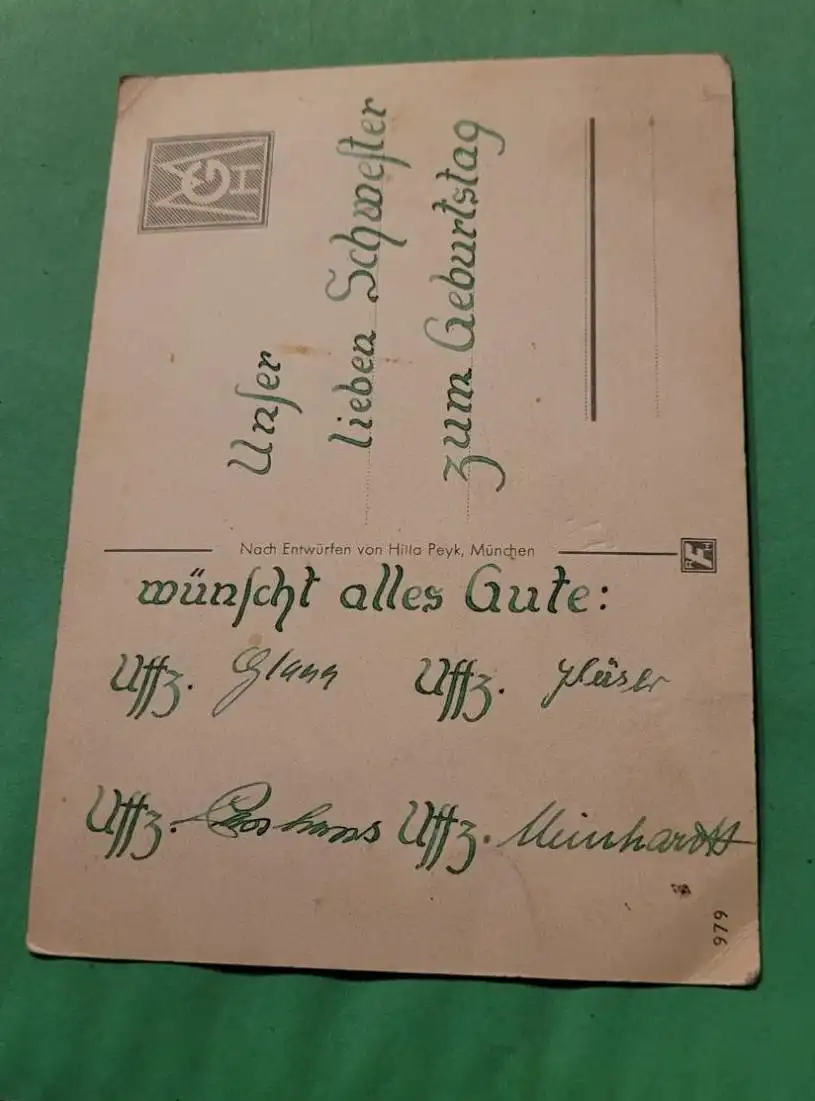 Unser
lieben Schwester
zum Geburtstag
Nach Entwürfen von Hilla Peyk, München
wünscht alles Gute:
Uffz. Uffz.
Uffz. Uffz. Meinhardt
979